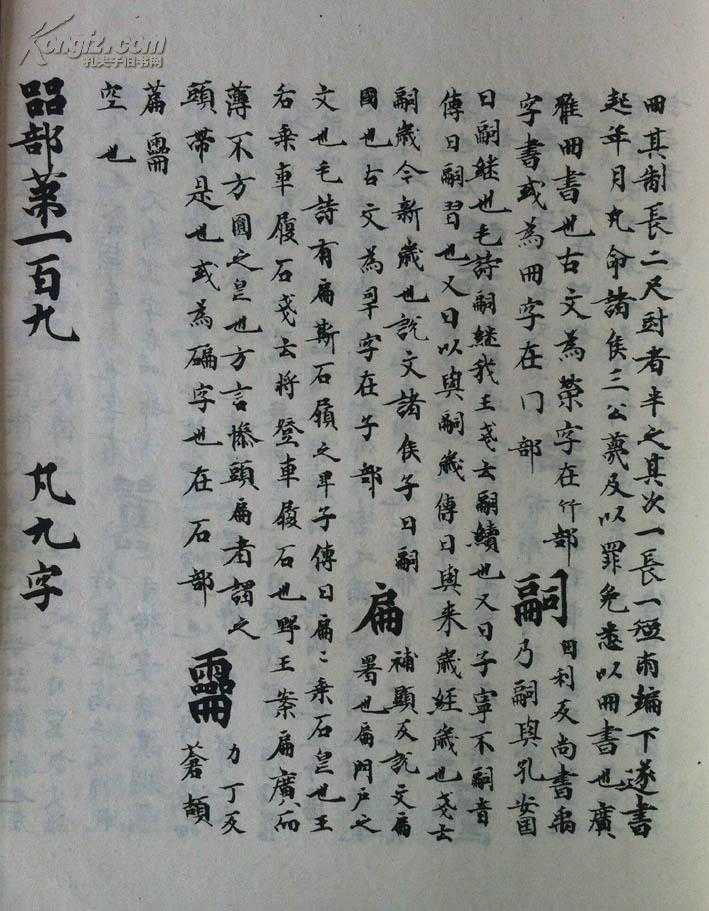 冊其制長二尺短者半之其次一長一短兩編下遂書
起年月凡命諸侯三公薨及以罪免悉以冊書也廣
雅冊書也古文為笧字在竹部
字書或為冊字在冂部
嗣
囙利反尚書禹
乃嗣與孔安国
曰嗣継也毛詩嗣継我王戔云嗣續也又曰子寧不嗣音
傳曰嗣習也又曰以與嗣歲傳曰與来歲経歲也戔云
嗣歲今新歲也說文諸侯子曰嗣
國也古文為孠字在子部
扁
補顯反說文扁
署也扁門戶之
文也毛詩有扁斯石履之卑子傳曰扁〻乗石皃也王
右乗車履石戔云将登車履石也野王案扁廣而
薄不方圓之皃也方言㡎頭扁者謂之
頭帶是也或為碥字也在石部
𠕲
力丁反
蒼頡
篇𠕲
空也
㗊部苐一百九 凡九字
Kongfz.com
孔夫子旧书网